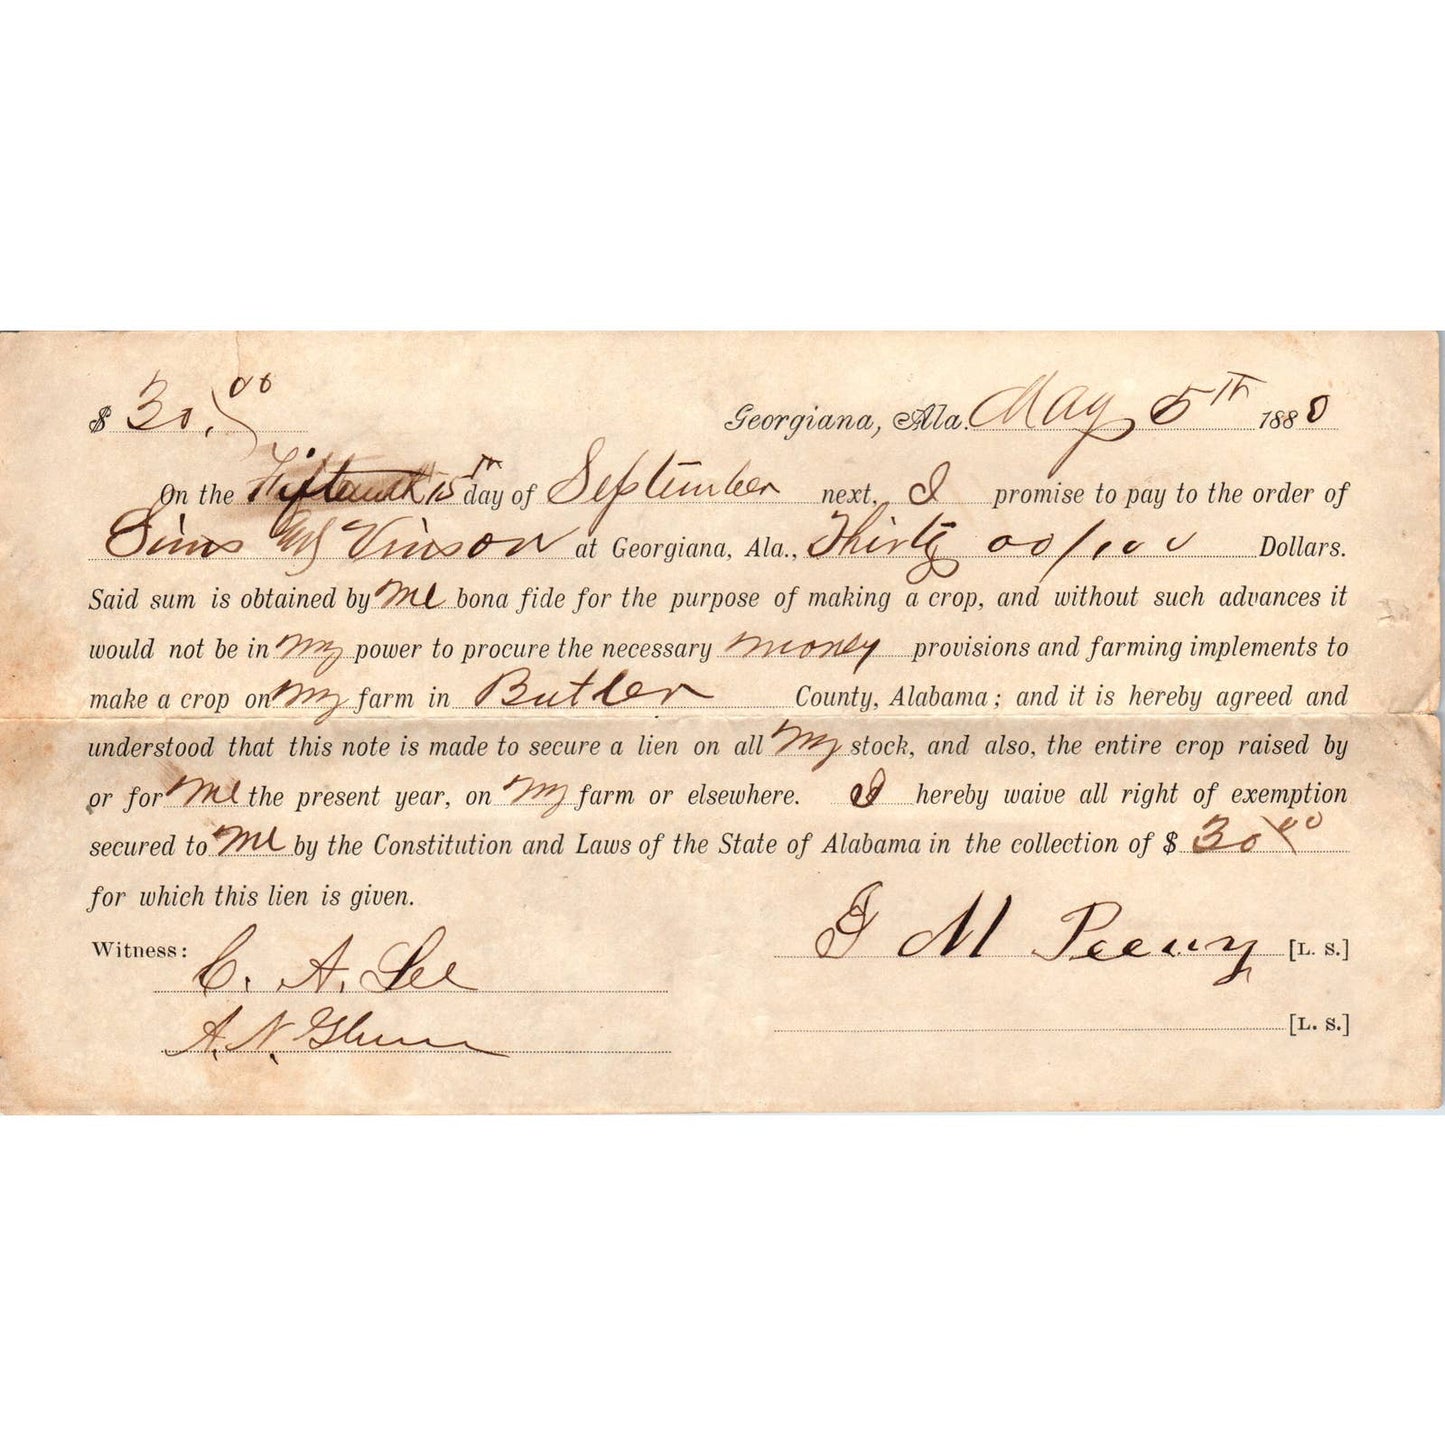 $ 30.00 Georgiana, Ala. May 5th 1880
On the Fifteenth 15th day of September next, I promise to pay to the order of
Sims & Vinson at Georgiana, Ala., Thirty 00/100 Dollars.
Said sum is obtained by me bona fide for the purpose of making a crop, and without such advances it
would not be in my power to procure the necessary money provisions and farming implements to
make a crop on my farm in Butler County, Alabama; and it is hereby agreed and
understood that this note is made to secure a lien on all my stock, and also, the entire crop raised by
or for me the present year, on my farm or elsewhere. I hereby waive all right of exemption
secured to me by the Constitution and Laws of the State of Alabama in the collection of $ 30 00
for which this lien is given.
Witness: C. A. Lee
M [L. S.]
A. N. [L. S.]